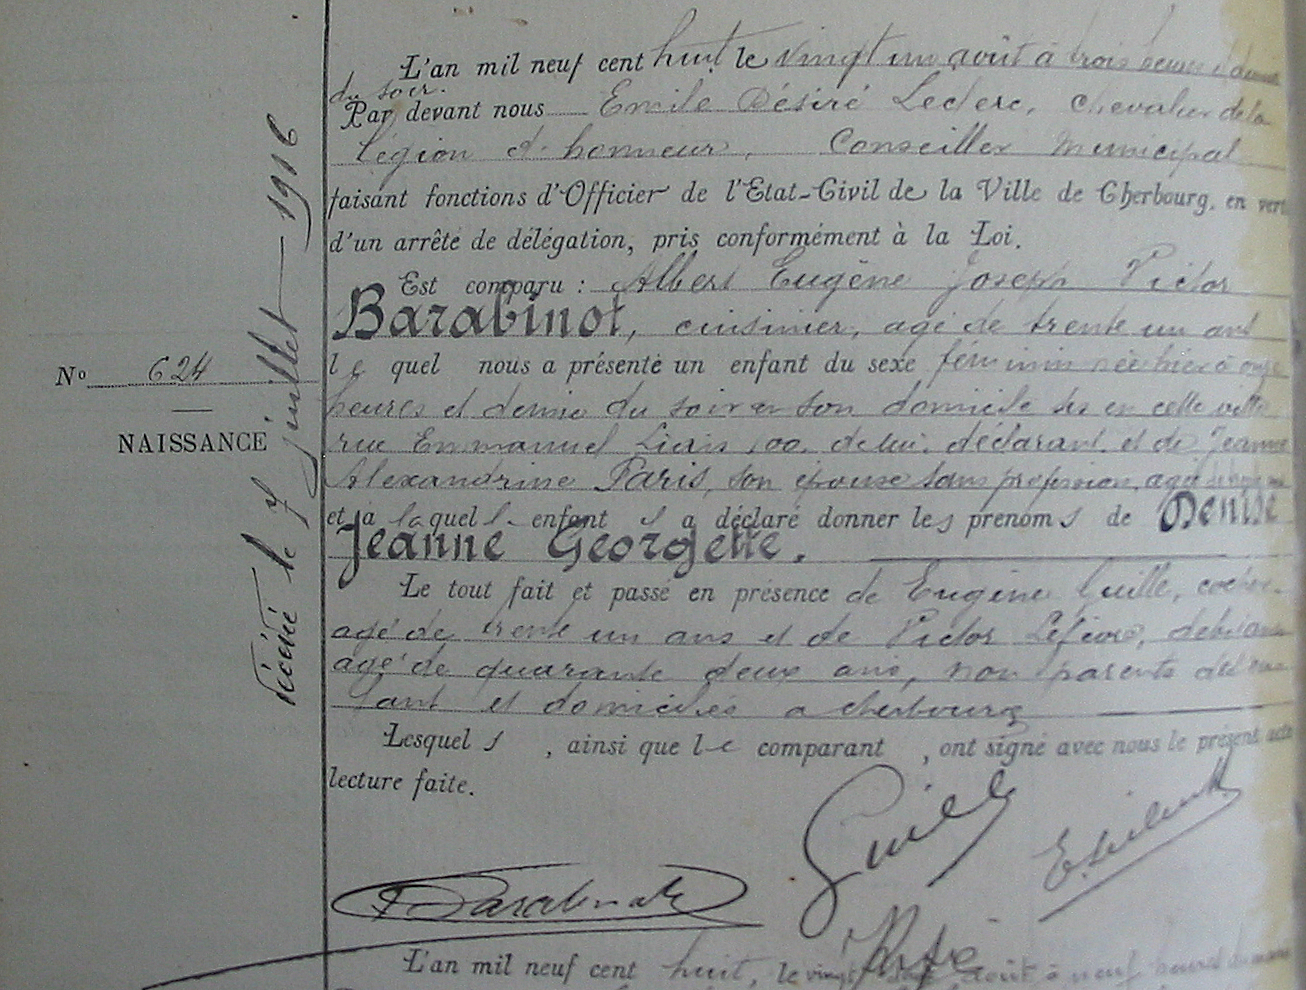 L'an mil neuf cent huit le vingt un août à trois heures et demie
du soir.
Par devant nous Emile Désiré Leclerc, Chevalier de la
légion d'honneur, Conseiller Municipal
faisant fonctions d'Officier de l'Etat-Civil de la Ville de Cherbourg, en vert
d'un arrêté de délégation, pris conformément à la Loi.
Est comparu : Albert Eugène Joseph Victor
Barabinot, cuisinier, agé de trente un ans
le quel nous a présenté un enfant du sexe féminin née hier à onze
heures et demie du soir en son domicile sis en cette ville
rue Emmanuel Liais 100, de lui déclarant et de Jeanne
Alexandrine Paris, son épouse sans profession, agée
et a laquelle enfant il a déclaré donner les prénoms de Denise
Jeanne Georgette.
Le tout fait et passé en présence de Eugène Guille, cocher
agé de trente un ans et de Victor Lefèvre, débitant
agé de quarante deux ans, non parents
et domiciliés à cherbourg
Lesquels, ainsi que le comparant, ont signé avec nous le présent acte
lecture faite.
Nº 624
NAISSANCE
décédée le 7 juillet 1916
Guille
Barabinot
L'an mil neuf cent huit, le vingt août à neuf heures du